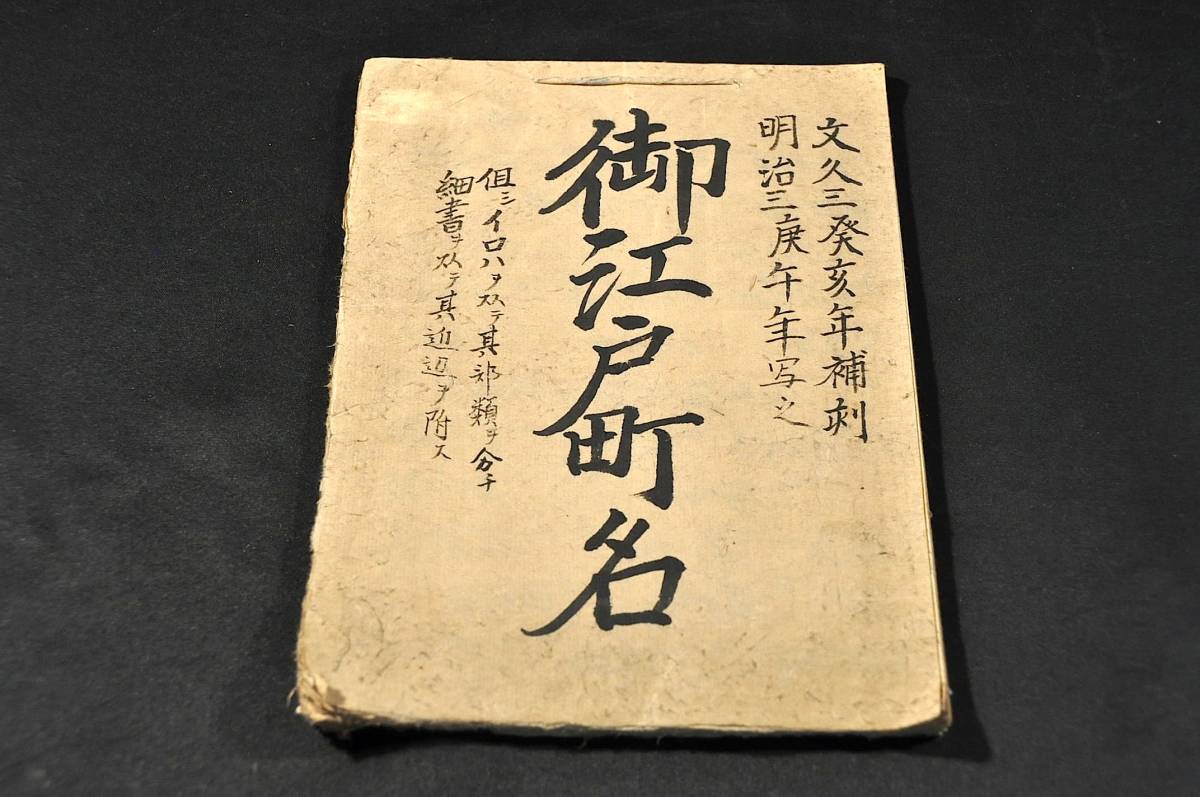 文久三癸亥年補刻
明治三庚午年写之
御江戸町名
但シイロハヲ以テ其部類ヲ分チ
細書ヲ以テ其近辺ヲ附ス